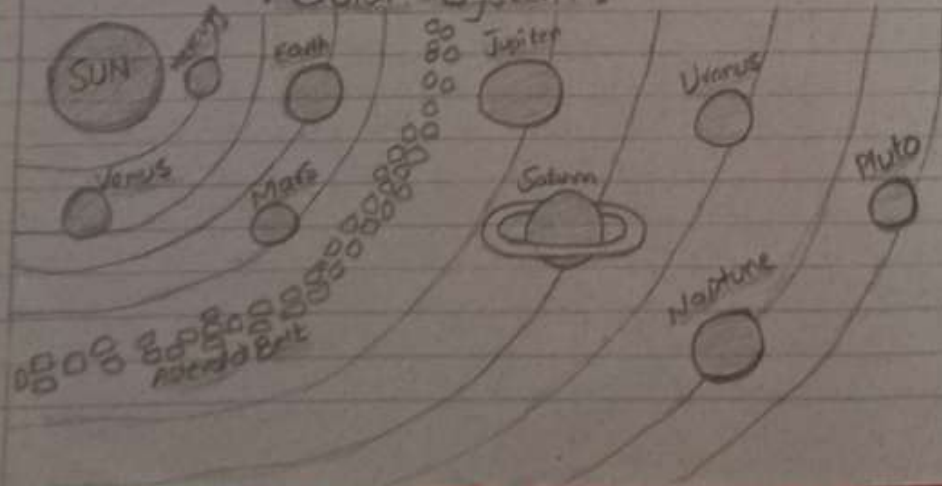 Solar System
SUN
Mercury
Earth
Jupiter
Uranus
Venus
Mars
Saturn
Pluto
Neptune
Asteroid Belt